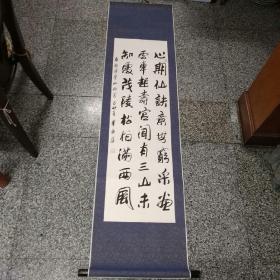 心期仙訣意無窮采畫
雲車起壽宮聞有三山未
知處茂陵松柏滿西風